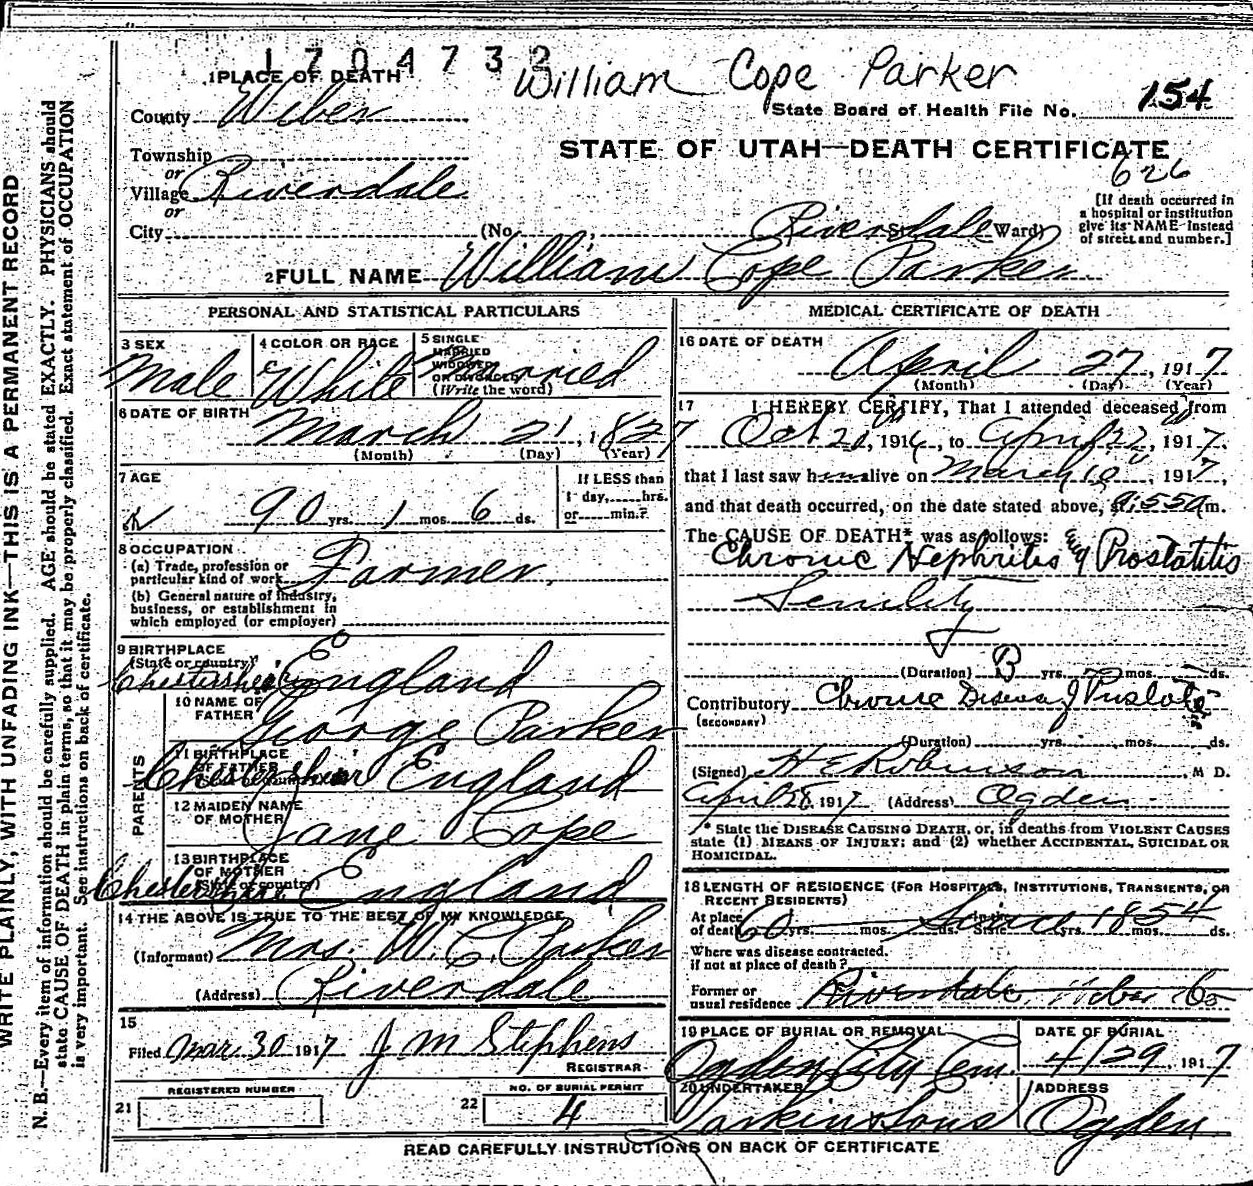 1704732
William Cope Parker
1 PLACE OF DEATH
County Weber
State Board of Health File No. 154
STATE OF UTAH—DEATH CERTIFICATE
626
Township
or
Village Riverdale
or
City (No. , Riverdale St. Ward)
[If death occurred in
a hospital or institution
give its NAME instead
of street and number.]
2 FULL NAME William Cope Parker
PERSONAL AND STATISTICAL PARTICULARS
3 SEX
Male
4 COLOR OR RACE
White
5 SINGLE
MARRIED
WIDOWED
OR DIVORCED
(Write the word)
Married
6 DATE OF BIRTH
March 21, 1827
(Month) (Day) (Year)
7 AGE
90 yrs. 1 mos. 6 ds.
If LESS than
1 day, hrs.
or min.?
8 OCCUPATION
(a) Trade, profession or
particular kind of work Farmer
(b) General nature of industry,
business, or establishment in
which employed (or employer)
9 BIRTHPLACE
(State or country)
England
10 NAME OF
FATHER
George Parker
11 BIRTHPLACE
OF FATHER
(State or country)
England
12 MAIDEN NAME
OF MOTHER
Jane Cope
13 BIRTHPLACE
OF MOTHER
(State or country)
England
PARENTS
14 THE ABOVE IS TRUE TO THE BEST OF MY KNOWLEDGE
(Informant) Mrs. W. C. Parker
(Address) Riverdale
15
Filed Mar. 30 1917 J M Stephens
REGISTRAR
REGISTERED NUMBER
21
NO. OF BURIAL PERMIT
22 4
MEDICAL CERTIFICATE OF DEATH
16 DATE OF DEATH
April 27, 1917
(Month) (Day) (Year)
17 I HEREBY CERTIFY, That I attended deceased from
Oct 20, 1916, to April 22, 1917,
that I last saw h alive on March 10, 1917,
and that death occurred, on the date stated above, 9:55 am.
The CAUSE OF DEATH* was as follows:
Chronic Nephritis & Prostatitis
Senility
(Duration) yrs. mos. ds.
Contributory Chronic Disease of
(SECONDARY)
(Duration) yrs. mos. ds.
(Signed) H E Robinson, M D.
April 28, 1917 (Address) Ogden
* State the DISEASE CAUSING DEATH, or, in deaths from VIOLENT CAUSES
state (1) MEANS OF INJURY; and (2) whether ACCIDENTAL, SUICIDAL OR
HOMICIDAL.
18 LENGTH OF RESIDENCE (FOR HOSPITALS, INSTITUTIONS, TRANSIENTS, OR
RECENT RESIDENTS)
At place
of death 60 yrs. mos. ds. In the State Since 1854 yrs. mos. ds.
Where was disease contracted.
if not at place of death?
Former or
usual residence Riverdale, Weber Co
19 PLACE OF BURIAL OR REMOVAL
Ogden City Cem.
DATE OF BURIAL
4/29, 1917
20 UNDERTAKER
Larkin & Sons
ADDRESS
Ogden
READ CAREFULLY INSTRUCTIONS ON BACK OF CERTIFICATE
WRITE PLAINLY, WITH UNFADING INK—THIS IS A PERMANENT RECORD
N. B.—Every item of information should be carefully supplied. AGE should be stated EXACTLY. PHYSICIANS should
state CAUSE OF DEATH in plain terms, so that it may be properly classified. Exact statement of OCCUPATION
is very important. See instructions on back of certificate.